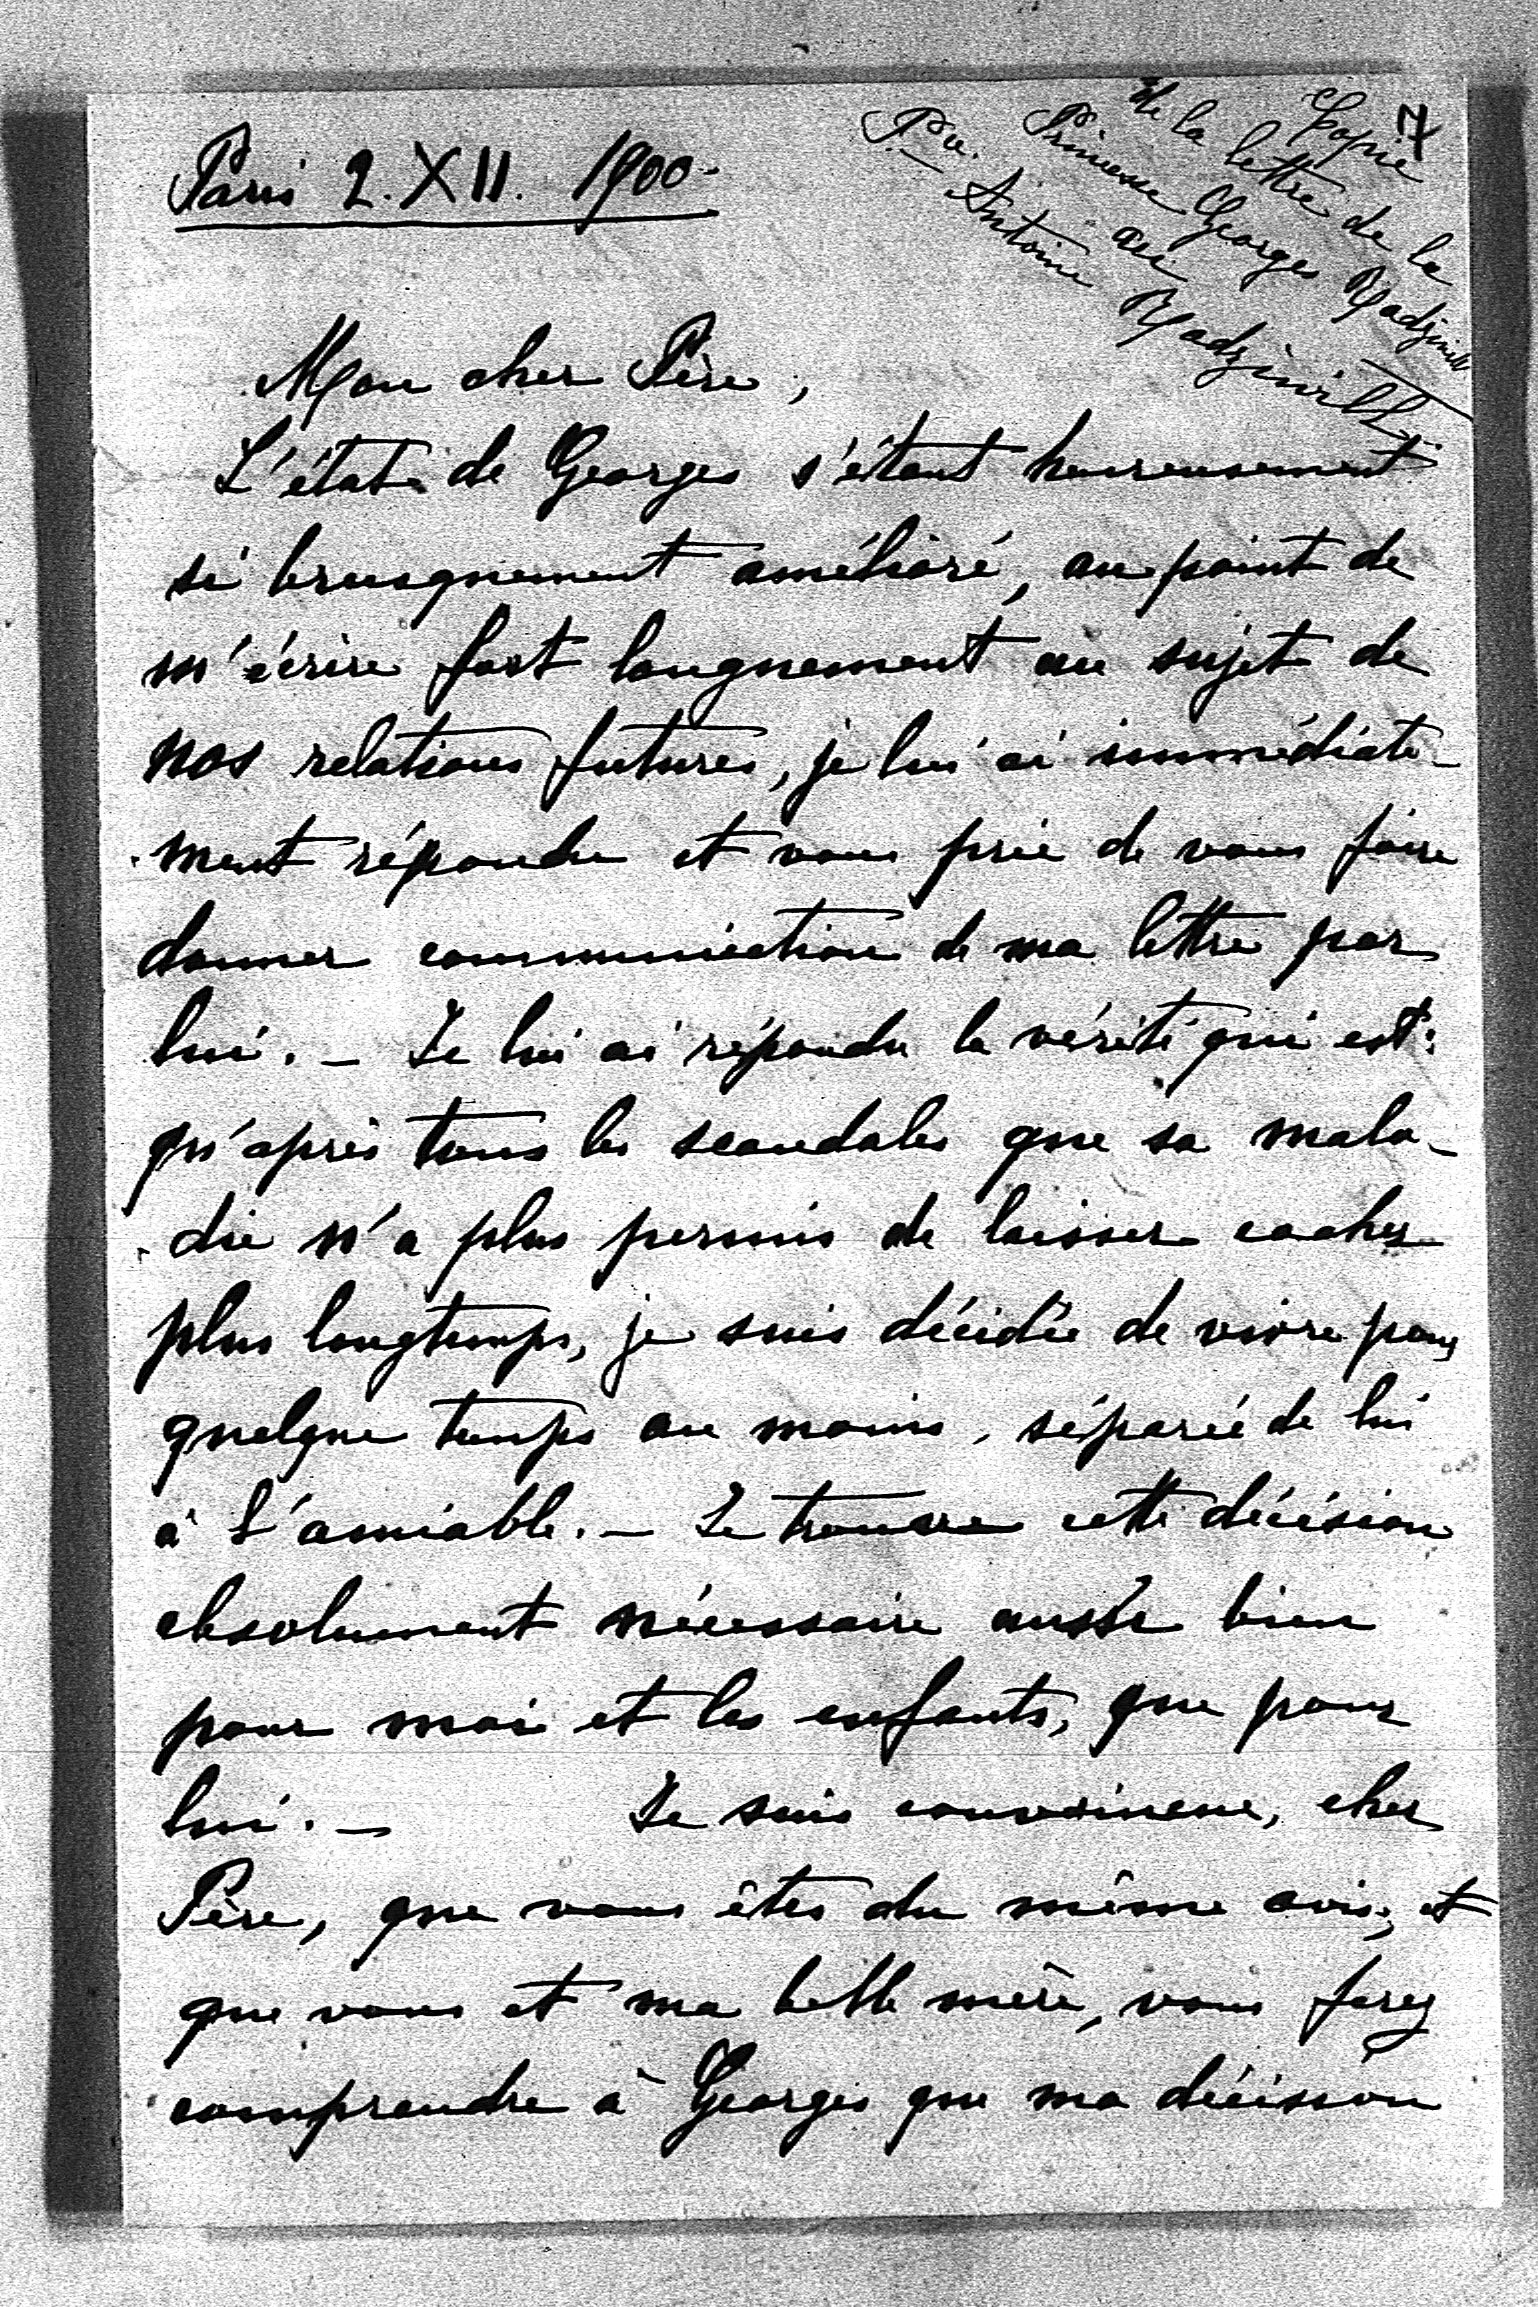 7
Copie
de la lettre de la
Princesse Georges Radziwill
au
Pce. Antoine Radziwill.
Paris 2. XII. 1900.
Mon cher Père,
L'état de Georges s'étant heureusement
si brusquement amélioré, au point de
m'écrire fort longuement au sujet de
nos relations futures, je lui ai immédiate-
ment répondu et vous prie de vous faire
donner communication de ma lettre par
lui. – Je lui ai répondu la vérité qui est:
qu'après tous les scandales que sa mala-
die n'a plus permis de laisser cacher
plus longtemps, je suis décidée de vivre pour
quelque temps au moins, séparée de lui
à l'amiable. – Je trouve cette décision
absolument nécessaire aussi bien
pour moi et les enfants, que pour
lui. – Je suis convaincue, cher
Père, que vous êtes du même avis, et
que vous et ma belle mère, vous ferez
comprendre à Georges que ma décision